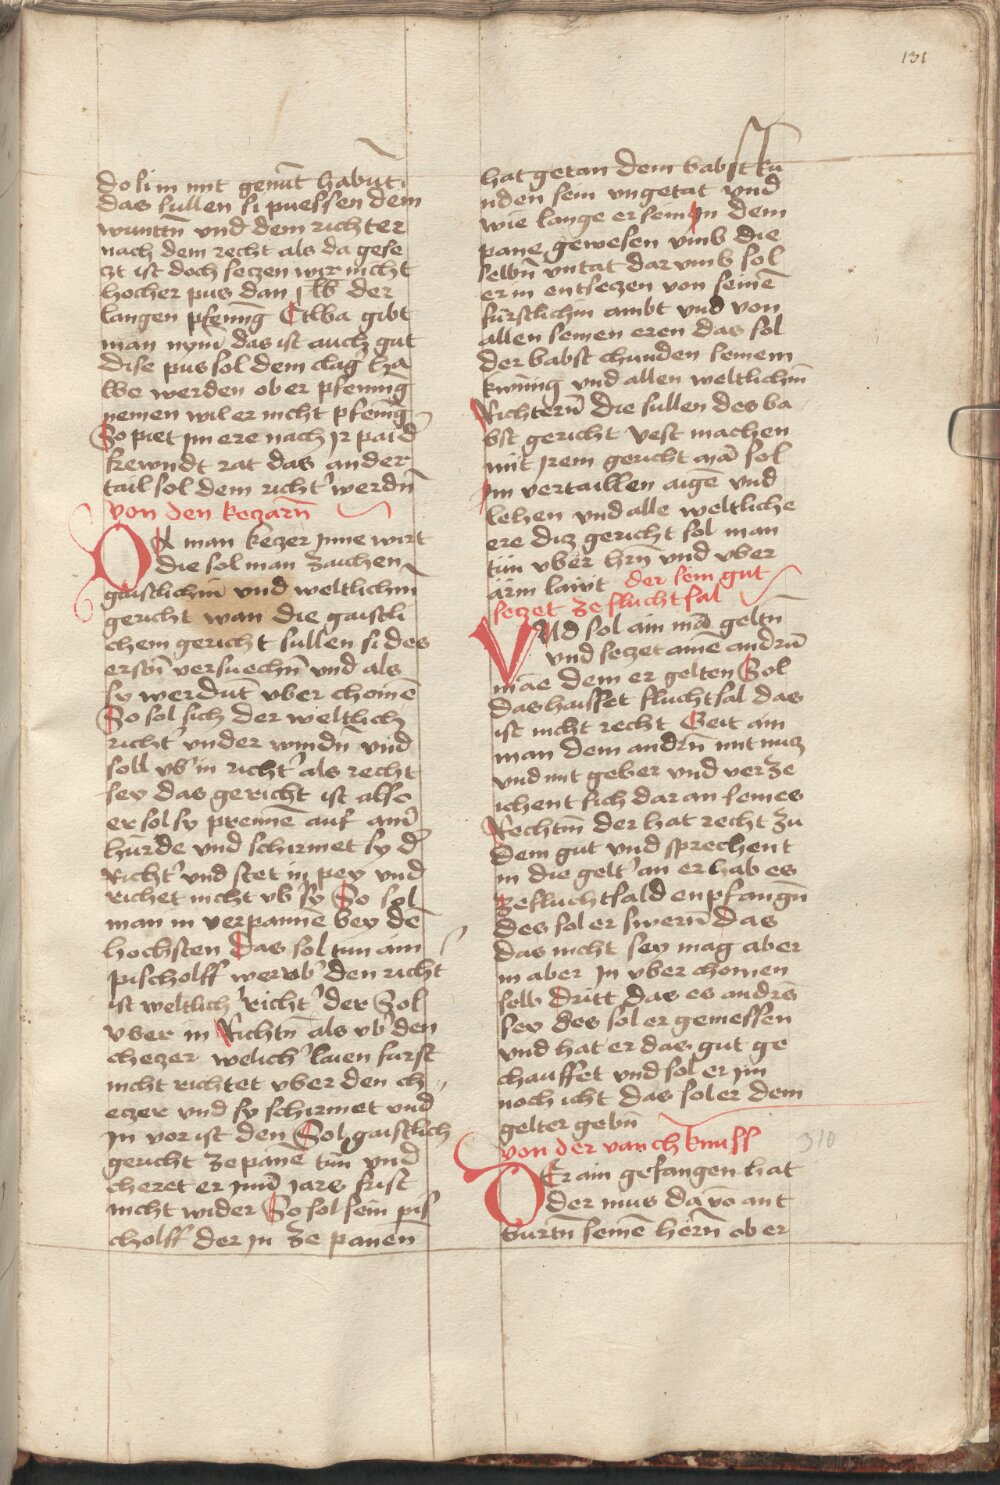 131
do si in mit genut habnt
das sullen si puessen dem
wuntn̄ und dem richter
nach dem recht als da gese
zt ist doch seczen wir nicht
hocher pus dan j lb der
langen pfenīg Etlba gibt
man nym̄ das ist auch gut
dise pus sol dem clag̉ ha
lbe werden ob er pfening
nemen wil er nicht pfenīg
So piet im ere nach ir paid̉
frewndt rat das ander
tail sol dem richt̉ werdn̄
von den keczarn̄
Da man keczer jnne wirt
die sol man zaichen
gaistlichm̄ und weltlichm
gericht wan die gaistli
chem gericht sullen si des
ersten̄ versuechn̄ und als
sy werdent vber chomē
So sol sich der weltlich
richt̉ vnder windn̄ und
soll vb̉ in richt̉ als recht
sey das gericht ist also
er sol sy prennē auf ain̉
hurde vnd schirmet sy d̉
Richt̉ vnd stet in pey vnd
richet nicht vb̉ sy So sol
man in verpannē bey dē
hochsten Das sol tun ain
pischolff wer vb̉ den richt̉
ist weltlich̉ richt̉ der Sol
vber in Richtn̄ als vb̉ den
checzer welich̉ laien furst
nicht richtet vber den ch
eczer vnd sy schirmet und
jn vor ist den Sol gaistlich
gericht ze pane tun vnd
cheret er jnn̄ jars frist
nicht wider So sol sein pis
cholff der jn ze panen̄
hat getan dem babst ku
nden sein vngetat vnd
wie lange er sein jn dem
pane gewesen vmb die
selbn̄ vntat dar vmb sol
er in entseczen von seinē
furstlichm ambt vnd von
allen seinen eren das sol
der babst chunden seinem
kwnīg vnd allen weltlichm̄
Richtern̄ die sullen des ba
bst gericht vest machen
mit jrem gericht mā sol
jm vertaillen aigē vnd
lehen vnd alle weltliche
ere dicz gericht sol man
tun vber hrn̄ vnd vber
arm lawt der sein gut
seczet ze fluchtsal
Und sol ain mā geltn̄
vnd seczet ainē andrn̄
māe dem er gelten Sol
das haisset fluchtsal das
ist nicht recht Geit ain
man dem andrn̄ mit nucz
vnd mit geber vnd verze
ichent sich dar an seines
Rechtn̄ der hat recht zu
dem gut vnd sprechent
in die gelt̉ an er hab es
ze fluchtsald enpfangn̄
des sol er swern̄ das
das nicht sey mag aber
in aber jn vber chomen
selb dritt das es andrs̄
sey des sol er geniessen
vnd hat er das gut ge
chauffet vnd sol er jm
noch icht das sol er dem
gelter gebn̄
von der vanchknuss 310
Der ain gefangen hat
der mus da vō ant
burtn̄ seinē hern̄ ob er